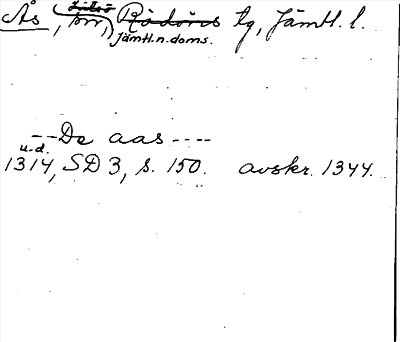 Ås, srr, Rödöns tg, Jämtl. l.
Jämtl. n. doms.
--De aas----
u.d.
1314, SD 3, s. 150. avskr. 1344.